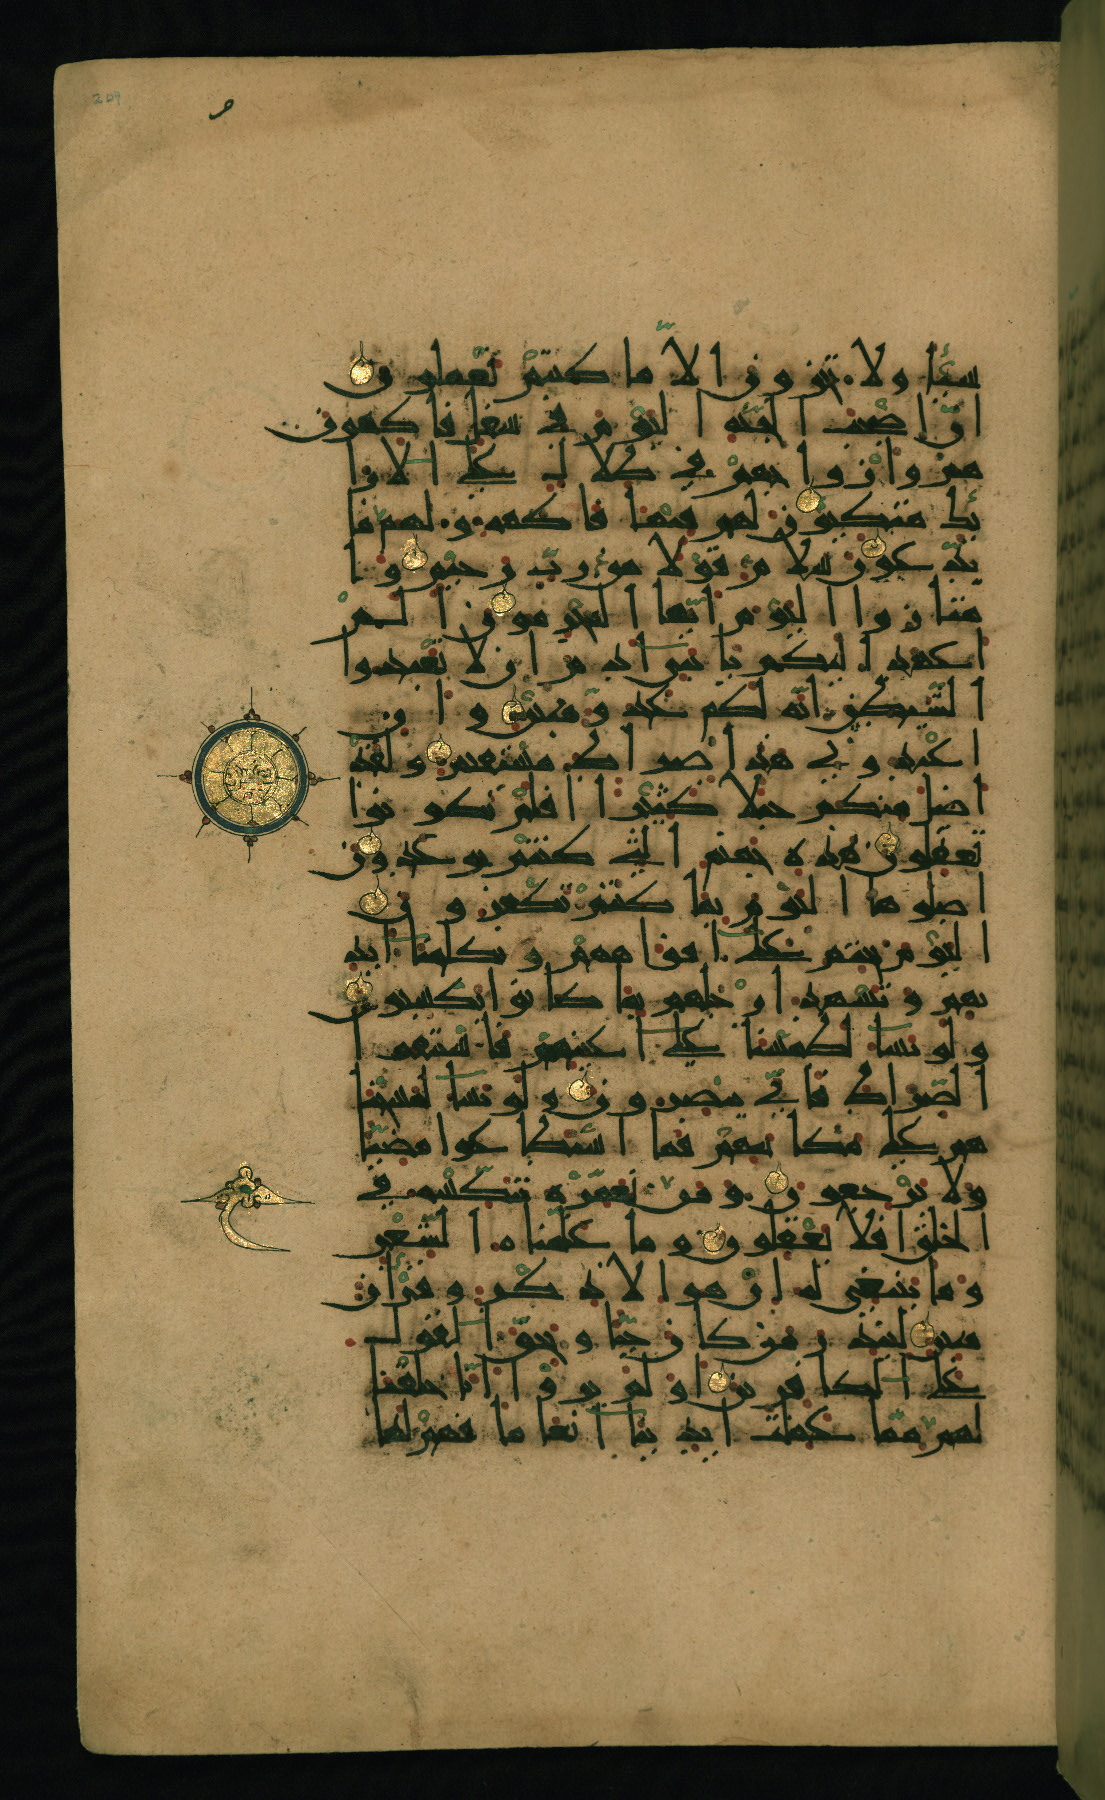 209
شيئا ولا تجزون الا ما كنتم تعملون
ان اصحب الجنه اليوم في شغل فاكهون
هم وازواجهم في ظلال على الارا
ئك متكئون لهم فيها فاكهه ولهم ما
يدعون سلام قولا من رب رحيم وا
متازوا اليوم ايها المجرمون الم
اعهد اليكم يا بني ادم ان لا تعبدوا
الشيطن انه لكم عدو مبين وان
اعبدوني هذا صراط مستقيم ولقد
اضل منكم جبلا كثيرا افلم تكونوا
تعقلون هذه جهنم التي كنتم توعدون
اصلوها اليوم بما كنتم تكفرون
اليوم نختم على افواههم وتكلمنا ايد
يهم وتشهد ارجلهم بما كانوا يكسبون
ولو نشا لطمسنا على اعينهم فاستبقوا
الصراط فانى يبصرون ولو نشا لمسخنا
هم على مكانتهم فما استطاعوا مضيا
ولا يرجعون ومن نعمره ننكسه في
الخلق افلا يعقلون وما علمناه الشعر
وما ينبغي له ان هو الا ذكر وقران
مبين لينذر من كان حيا ويحق القول
على الكافرين اولم يروا انا خلقنا
لهم مما عملت ايدينا انعاما فهم لها